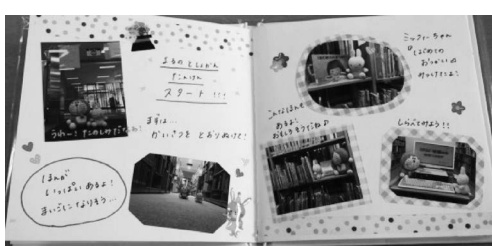 よるのとしょかん
たんけん
スタート!!!
うわー!たのしみだな
まずは…
かいさつを とおりぬけて!
ほんが
いっぱいあるよ!
まいごになりそう…
ミッフィーちゃん
『はじめての
おつかい』
みつけたよ!
こんなほんも
あるよ!
おもしろそうだね♪
しらべてみよう!!